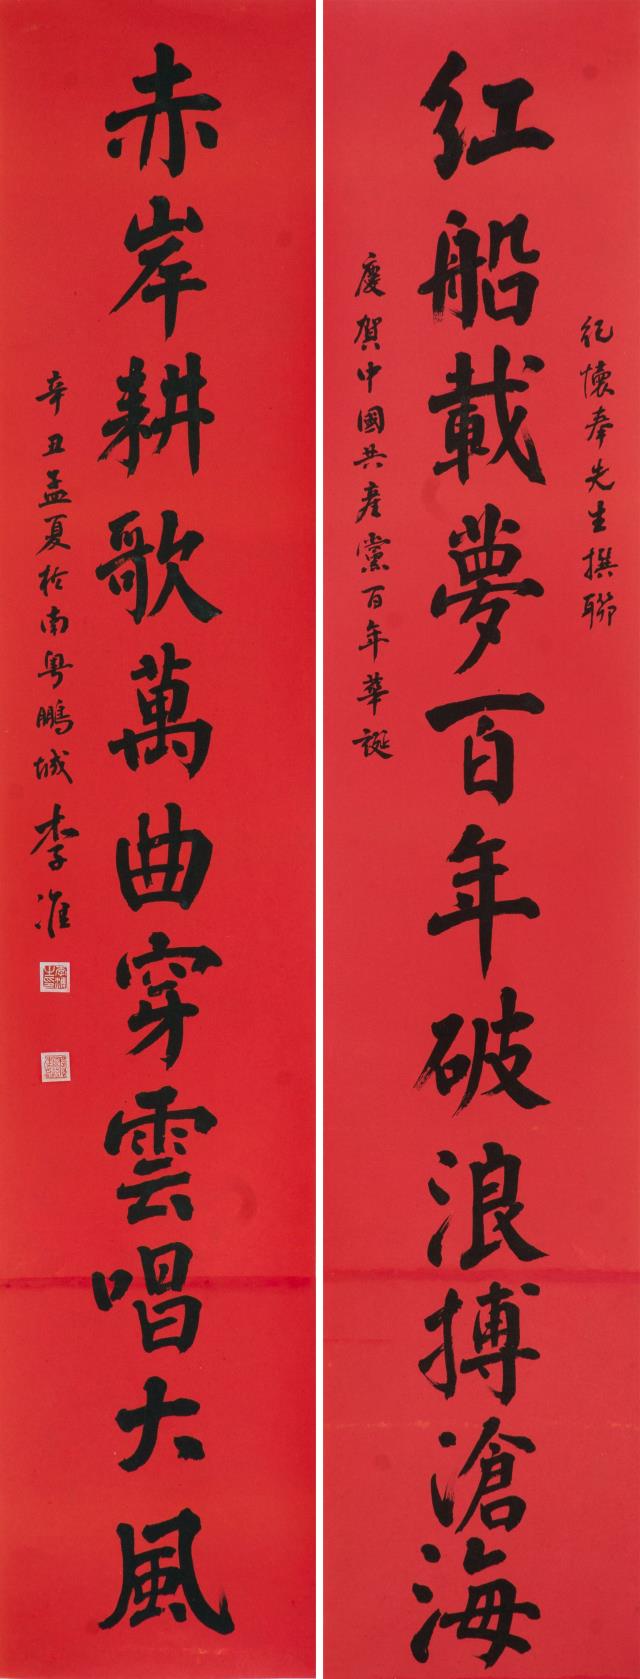 纪懷奉先生撰聯
红船載夢百年破浪搏滄海
慶賀中國共產黨百年華誕
赤岸耕歌萬曲穿雲唱大風
辛丑孟夏於南粵鵬城李准